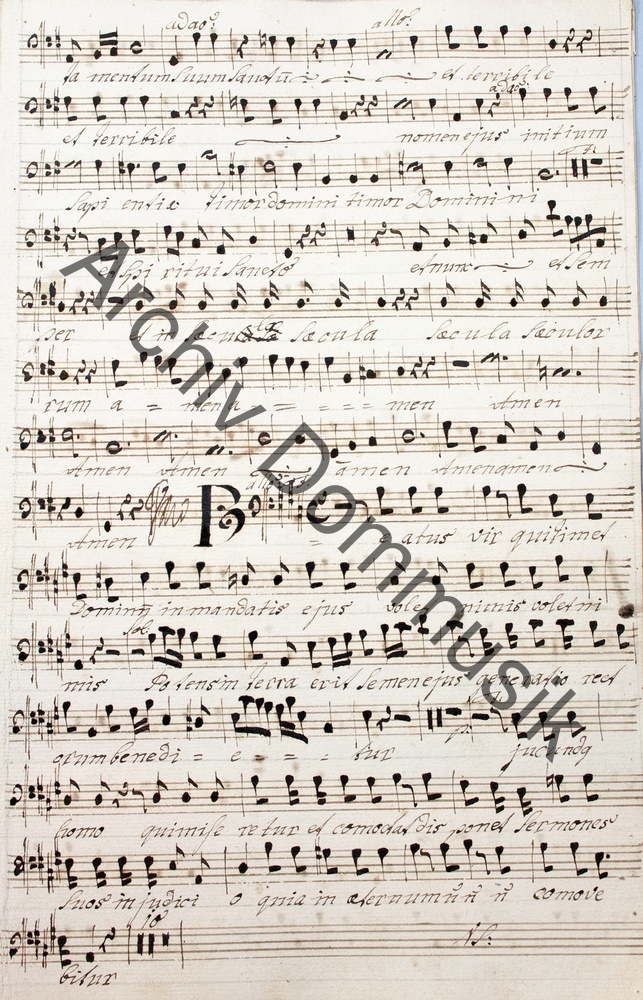 adao: allo:
ta mentum suum Sanctū et terribile
adao:
et terribile nomen ejus initium
Sapi entiæ timor domini timor Domini ni
et Spi ritui Sancto et nunc et Sem
per et in sæcula sæcula sæcula sæculor
rum a = men a = = = = men Amen
Amen Amen amen Amen amen
Amen B e atus vir qui timet
Dominū in mandatis ejus volet nimis volet ni
Sol:
mis Potens in terra erit Semen ejus generatio rect
p:
orum benedi = e = = tur jucundq
homo qui mise retur et comodat dis ponet Sermones
Suos in judici o quia in æternum n̄ n̄ comove
jo
bitur
Archiv Dommusik